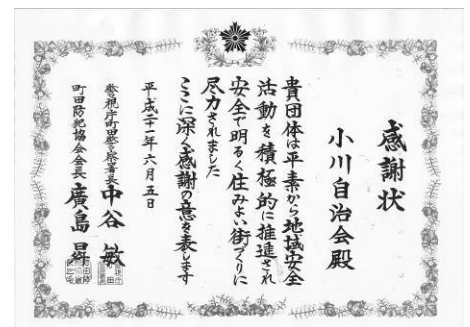 感謝状
小川自治会殿
貴団体は平素から地域安全
活動を積極的に推進され
安全で明るく住みよい街づくりに
尽力されました
ここに深く感謝の意を表します
平成二十一年六月五日
警視庁町田警察署長 中谷 敏
町田防犯協会会長 廣島 昇